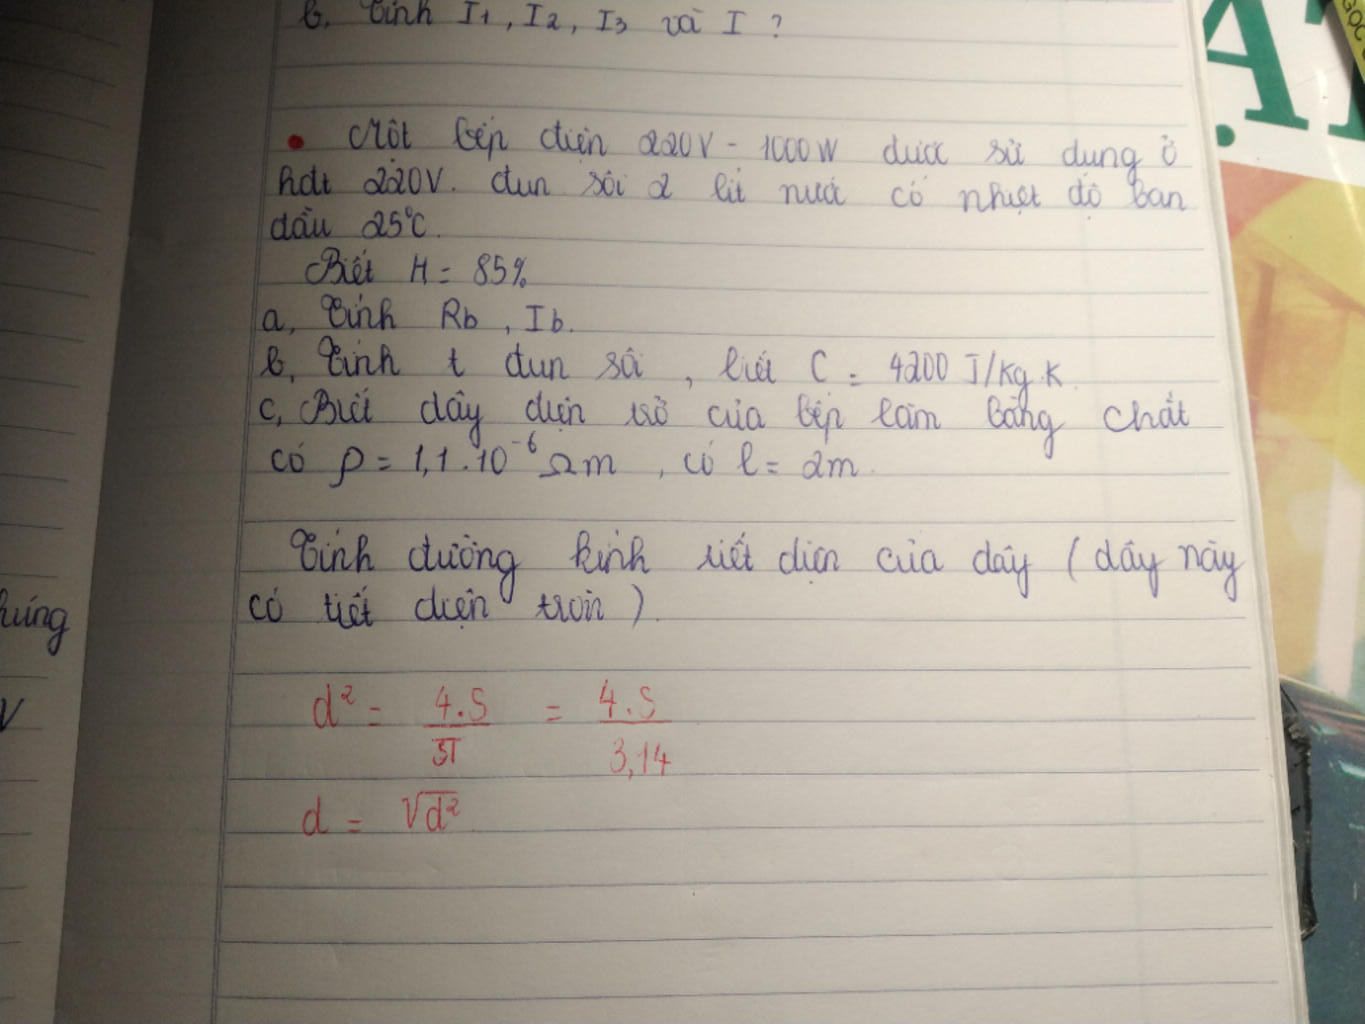 b, Tính I1, I2, I3 và I ?
Một bếp điện 220V - 1000W được sử dụng ở
hđt 220V. đun sôi 2 lít nước có nhiệt độ ban
đầu 25°C.
Biết H = 85%
a, Tính Rb, Ib.
b, Tính t đun sôi, biết C = 4200 J/kg.K
c, Biết dây điện trở của bếp làm bằng chất
có ρ = 1,1.10⁻⁶ Ωm, có l = 2m.
Tính đường kính tiết diện của dây (dây này
có tiết diện tròn).
d² = 4.S/π = 4.S/3,14
d = √d²
hứng
V
AT
GỌC